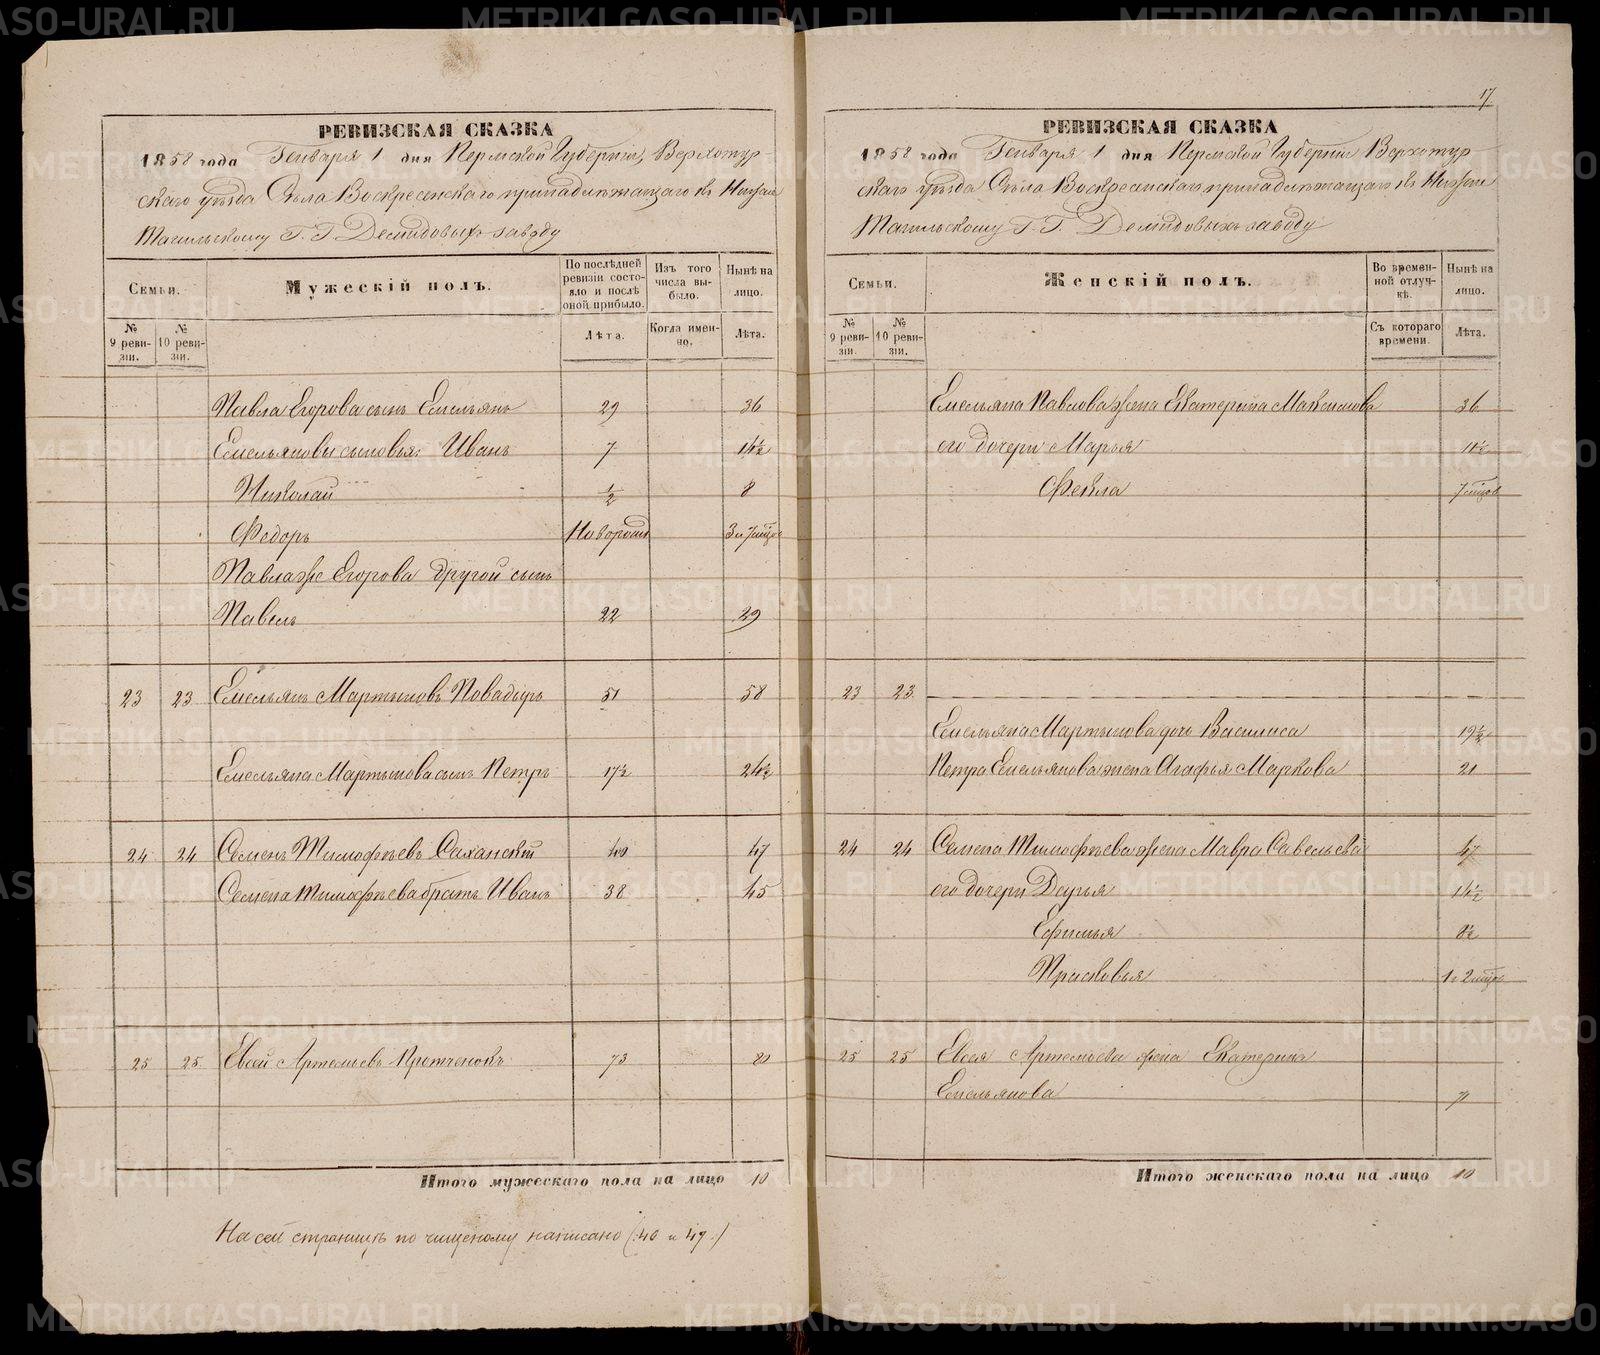 17
РЕВИЗСКАЯ СКАЗКА
1858 года Генваря 1 дня Пермской Губерніи, Верхотур-
скаго уѣзда Села Воскресенскаго принадлежащаго къ Нижне
Тагильскому Г. Г. Демидовыхъ заводу
Семьи.
№ 9 ревизіи.
№ 10 ревизіи.
Мужескій полъ.
По послѣдней ревизіи состояло и послѣ оной прибыло.
Лѣта.
Изъ того числа выбыло.
Когда именно.
Нынѣ на лицо.
Лѣта.
Павла Егорова сынъ Емельянъ 29 36
Емельяновы сыновья: Иванъ 7 14½
Николай ½ 8
Федоръ Новорожд 3 и 7 мцов
Павла же Егорова другой сынъ
Павелъ 22 29
23 23 Емельянъ Мартыновъ Повадырь 51 58
Емельяна Мартынова сынъ Петръ 17½ 24½
24 24 Семенъ Тимофѣевъ Саханскій 40 47
Семена Тимофѣева братъ Иванъ 38 45
25 25 Евсей Артемьевъ 73 80
Итого мужескаго пола на лицо 10
На сей страницѣ по написано (40 и 49)
РЕВИЗСКАЯ СКАЗКА
1858 года Генваря 1 дня Пермской Губерніи Верхотур-
скаго уѣзда Села Воскресенскаго принадлежащаго къ Нижне
Тагильскому Г. Г. Демидовыхъ заводу
Семьи.
№ 9 ревизіи.
№ 10 ревизіи.
Женскій полъ.
Во временной отлучкѣ.
Съ котораго времени.
Нынѣ на лицо.
Лѣта.
Емельяна Павлова жена Екатерина Максимова 36
его дочери Марья 11½
Фекла 7 мцов
23 23
Емельяна Мартынова дочь Василиса 19½
Петра Емельянова жена Агафья Маркова 21
24 24 Семена Тимофѣева жена Мавра Савельева 47
его дочери Дарья 14½
Ефимья 8½
Прасковья 1 и 2 мцов
25 25 Евсея Артемьева жена Екатерина
Емельянова 71
Итого женскаго пола на лицо 10
METRIKI.GASO-URAL.RU